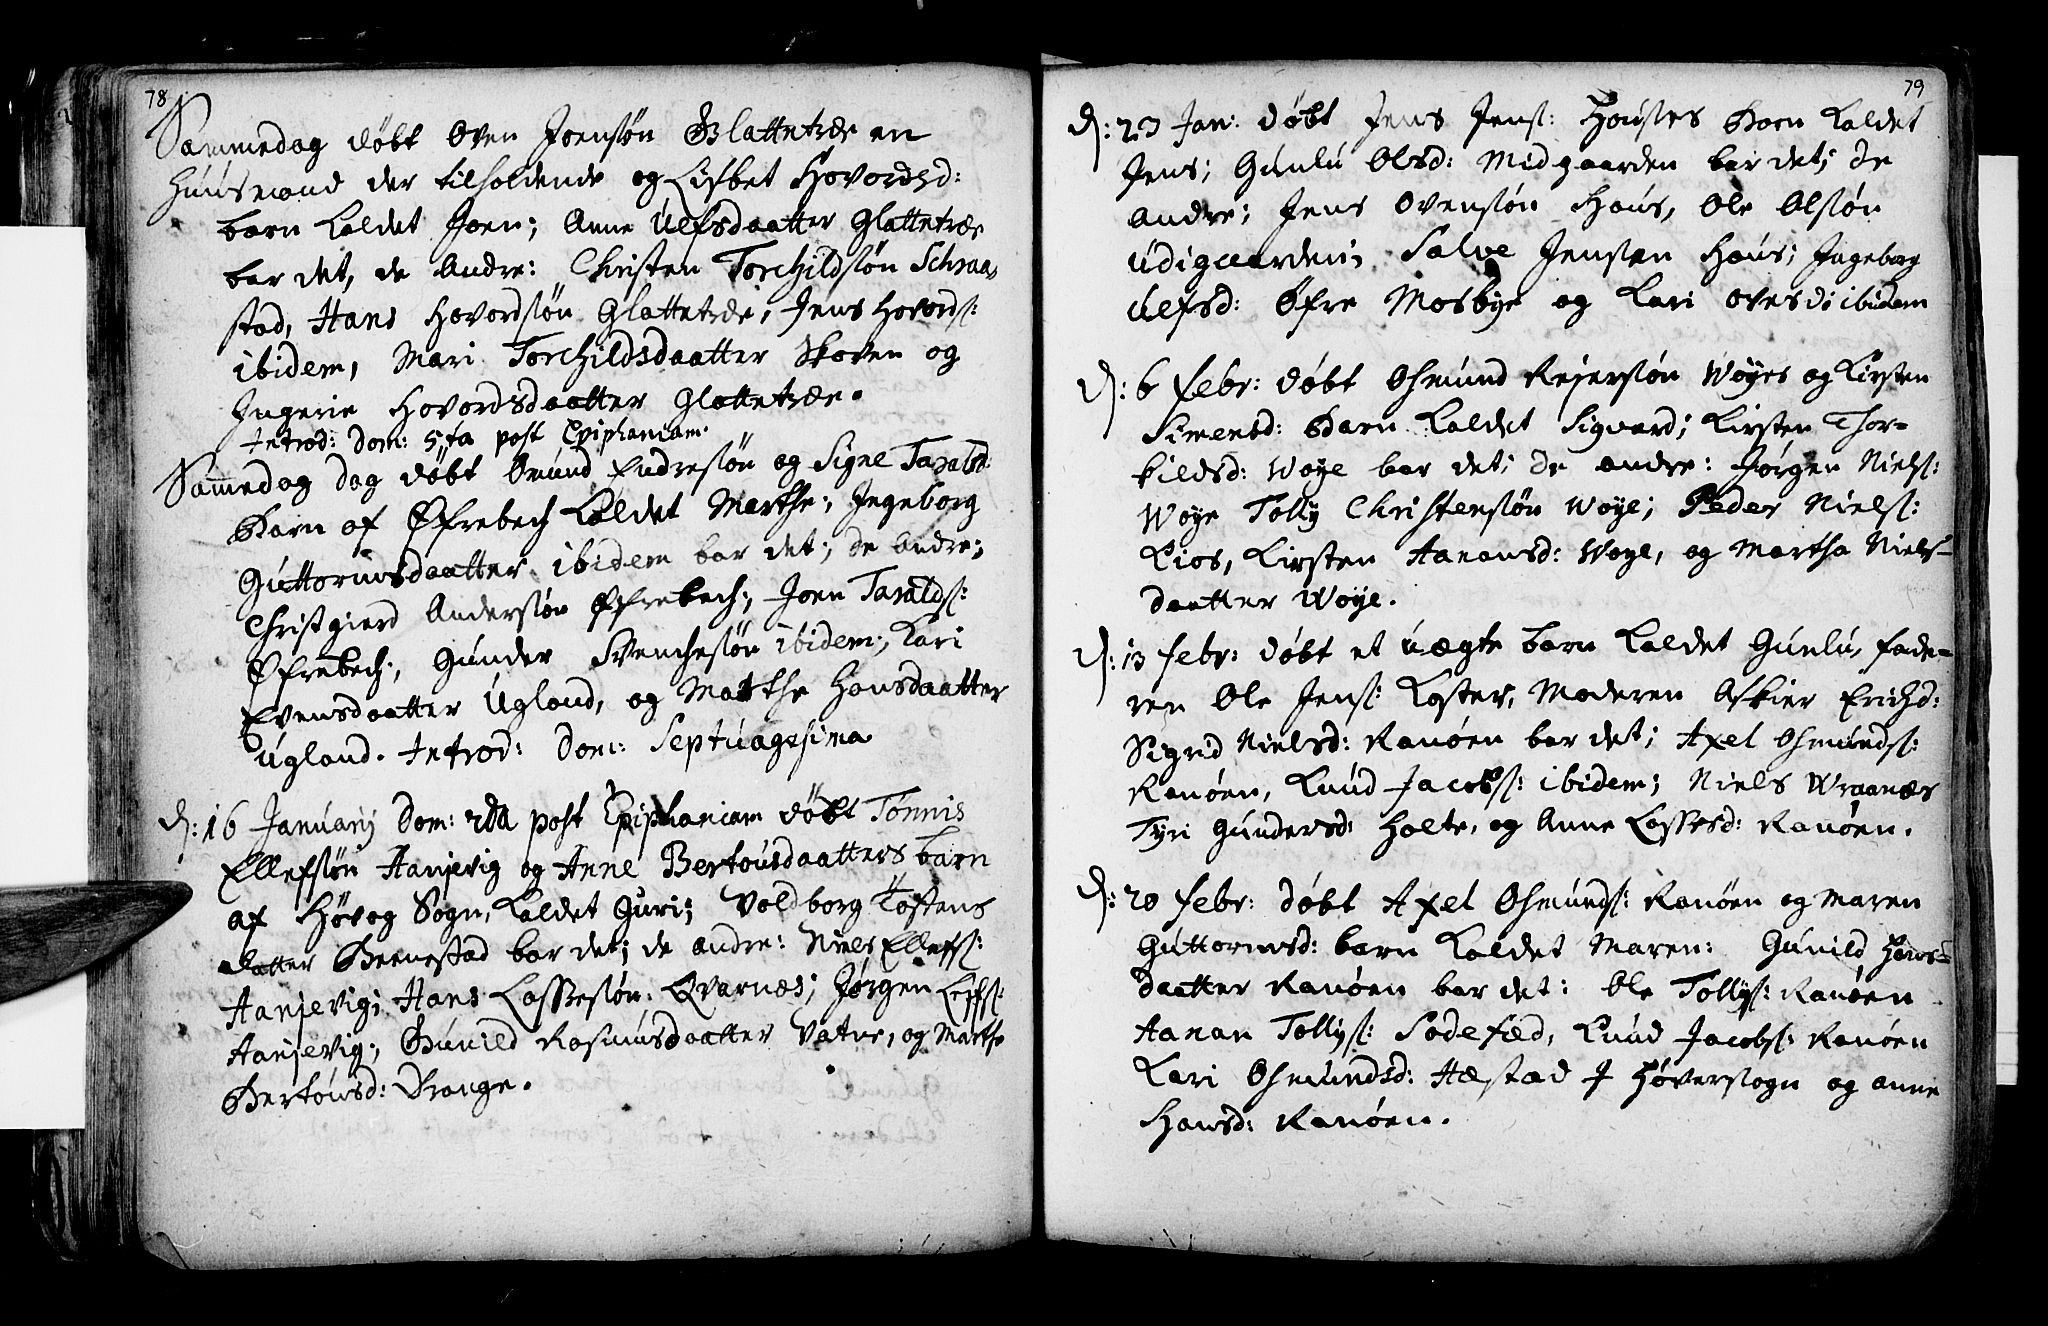 78
Sammedag døbt Oven Joensøn Glattetræ en
Huusmand der tilholdende og Lisbet Hovordsd:
barn kaldet Joen; Anne Ulfsdaatter Glattetræ
bar det, de Andre: Christen Torchildsøn Schraa,
stad, Hans Hovordsøn Glattetræ, Jens Hovords:
ibidem, Mari Torchildsdaatter Skoven og
Ingerie Hovordsdaatter Glattetræ.
Introd: Dom: 5ta post Epiphaniam.
Sammedag dag døbt Omund Endresøn og Signe Taraldsd:
Barn af Øfrebech kaldet Marthe; Ingeborg
Guttormsdaatter ibidem bar det; de Andre;
Christgierd Andersøn Øfrebech; Joen Taralds:
Øfrebech; Gunder Svenchesøn ibidem; Kari
Evensdaatter Ugland, og Marthe Hansdaatter
Ugland. Introd: Dom: Septuagesima
D: 16 Januarij Dom: 2da post Epiphaniam døbt Tønnis
Ellefsøn Aanjevig og Anne Bertousdaatters barn
af Høvog Sogn, kaldet Guri; Voldborg Tostens
datter Beenestad bar det; de andre: Niels Ellefs:
Aanjevig; Hans Lassesøn Qvarnes; Jørgen Leiffs:
Aanjevig; Gunild Rasmusdaatter Vatne, og Marthe
Bertousd: Drange.
79
D: 23 Jan: døbt Jens Jens: Houstes Barn kaldet
Jens; Gunlu Olsd: Midgaarden bar det; de
andre; Jens Ovensøn Hous, Ole Olsøn
Udigaarden; Salve Jensen Hous; Ingeborg
Ulfsd: Øfre Mosbye og Kari Ovesd: ibidem
D: 6 Febr: døbt Osmund Rejersøn Woyes og Kirsten
Simensd: Barn kaldet Sigvard; Kirsten Thor-
kildsd: Woye bar det; de andre: Jørgen Niels:
Woye Tolly Christensøn Woye; Peder Niels:
Kios, Kirsten Aanonsd: Woye, og Martha Niels-
daatter Woye.
D: 13 Febr: døbt et uægte barn kaldet Gunlu, fade-
ren Ole Jens: Koster, Moderen Askier Erichsd:
Sigrid Nielsd: Ranøen bar det; Axel Osmunds:
Ranøen, Knud Jacobs: ibidem; Niels Wraanæs
Tyri Gundersd: Holte, og Anne Lassesd: Ranøen.
D: 20 Febr: døbt Axel Osmunds: Ranøen og Maren
Guttormsd: barn kaldet Maren: Gunild Hans-
daatter Ranøen bar det: Ole Tollys: Ranøen
Aanan Tollys: Sodefied, Knud Jacobs: Ranøen
Kari Osmundsd: Hæstad J Høversogn og Anne
Hansd: Ranøen.